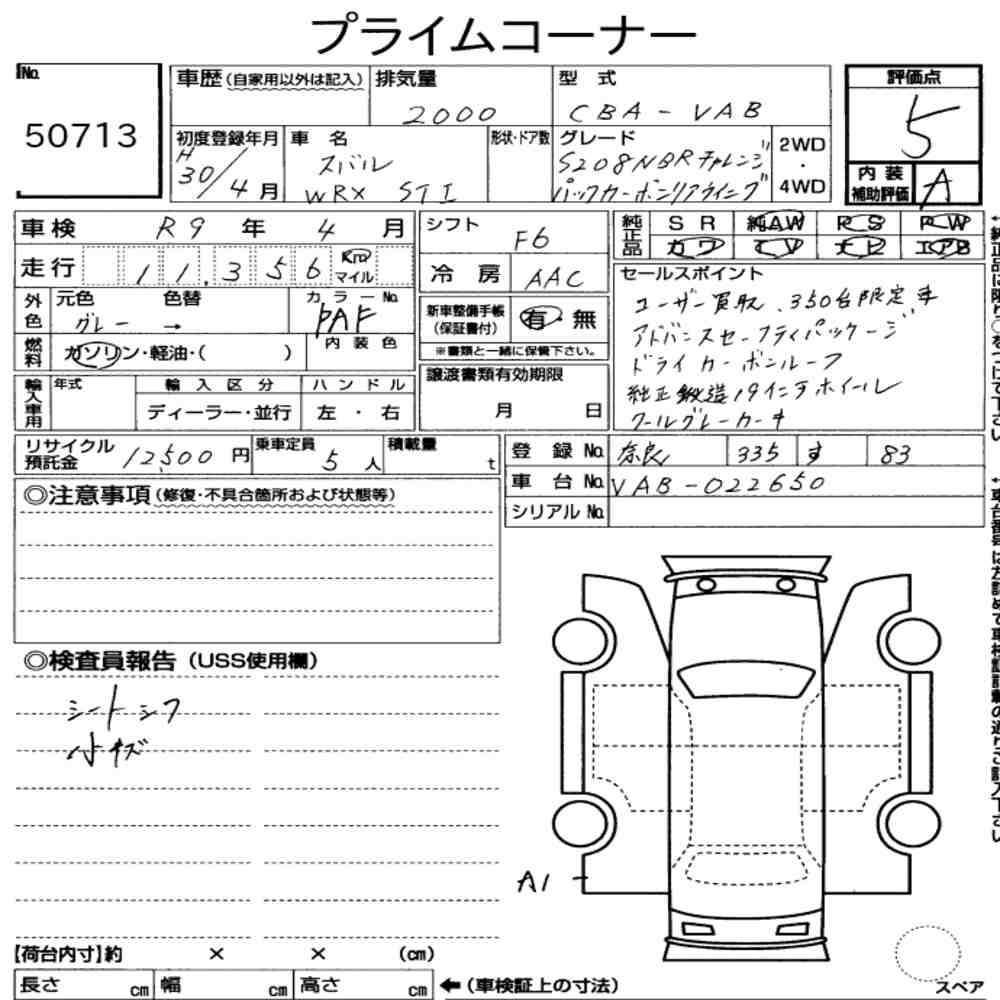 プライムコーナー
No.
50713
車歴(自家用以外は記入)
排気量
2000
型 式
CBA-VAB
評価点
5
初度登録年月
H30/4月
車 名
スバル
WRX STI
形状・ドア数
グレード
S208NBRチャレンジ
パックカーボンリアウイング
2WD
・
4WD
内装
補助評価
A
車検 R9 年 4 月
走行 11,356 Km
マイル
シフト F6
冷房 AAC
純正品
SR 純AW PS PW
カワ TV ナビ エアB
外色
元色 色替
グレー →
カラーNo.
PAF
燃料
ガソリン・軽油・( )
内装色
新車整備手帳
(保証書付)
有・無
※書類と一緒に保管下さい。
セールスポイント
ユーザー買取、350台限定車
アドバンスセーフティパッケージ
ドライカーボンルーフ
純正鍛造19インチホイール
クールグレーカーキ
輸入車用
年式
輸入区分
ディーラー・並行
ハンドル
左・右
譲渡書類有効期限
月 日
リサイクル
預託金
12,500 円
乗車定員
5 人
積載量
t
登録No. 奈良 335 す 83
車台No. VAB-022650
シリアルNo.
◎注意事項(修復・不具合箇所および状態等)
◎検査員報告(USS使用欄)
シートシワ
小キズ
A1
【荷台内寸】約 × × (cm)
長さ cm 幅 cm 高さ cm
←(車検証上の寸法)
スペア